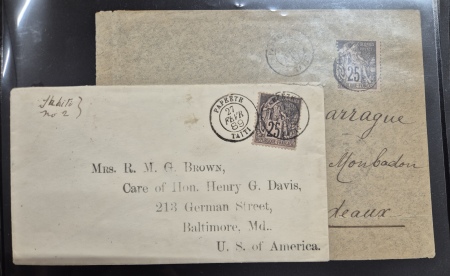 Tahiti
No 2
PAPEETE
27
FEVR
89
TAITI
25
Mrs. R. M. G. Brown,
Care of Hon. Henry G. Davis,
213 German Street,
Baltimore, Md..
U. S. of America.
25
arrague
Monbadon
deaux